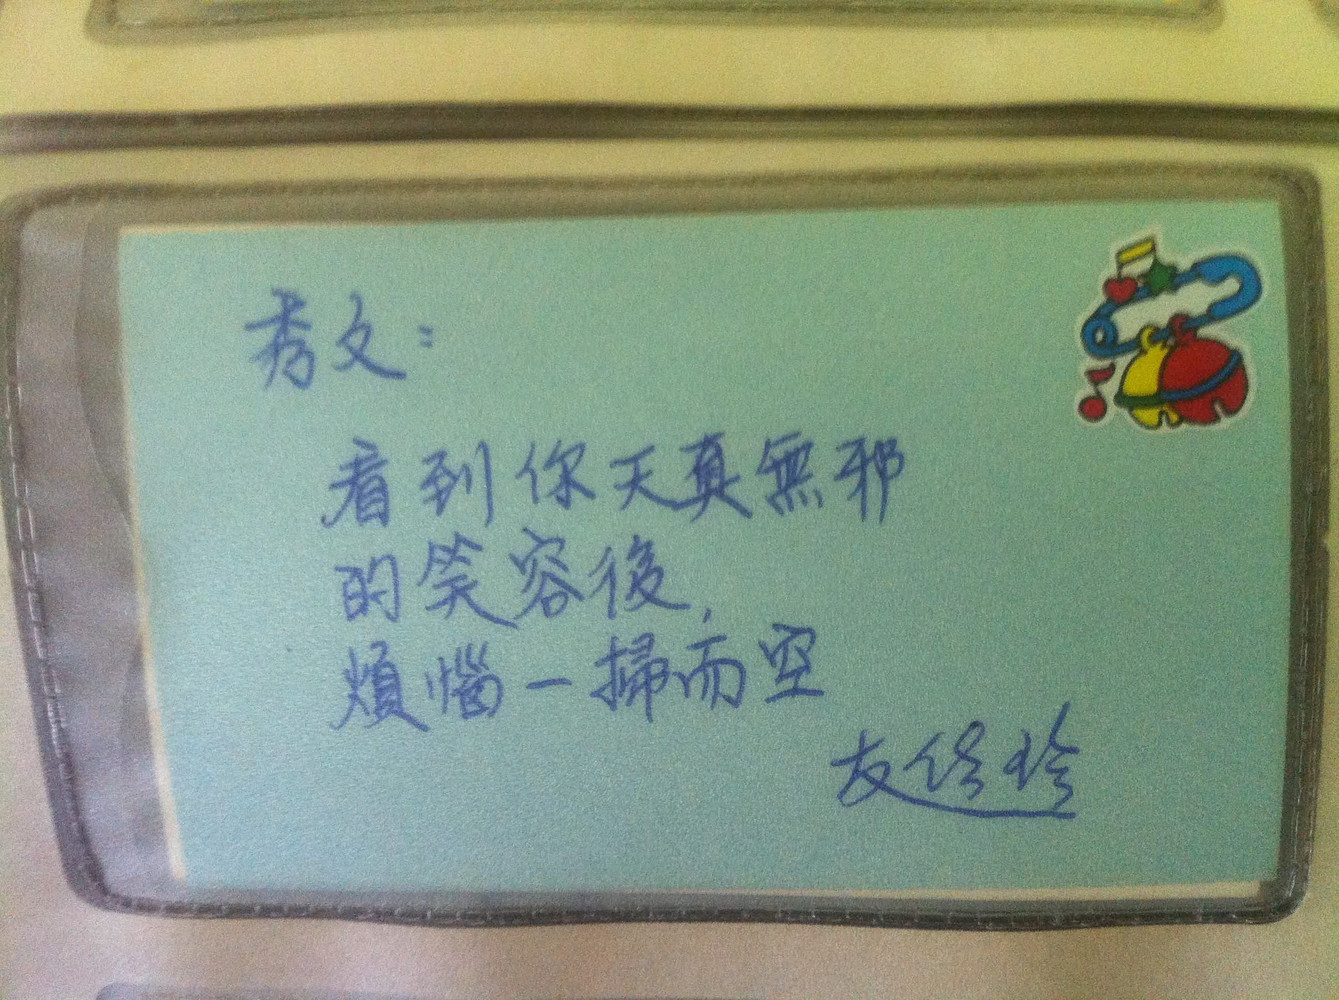 秀文：
看到你天真無邪
的笑容後，
煩惱一掃而空
友